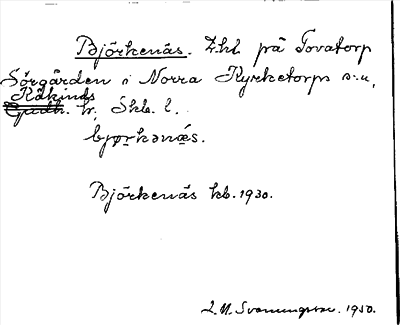 Björkenäs. Lhl på Tovatorp
Sörgården i Norra Kyrketorps s:n,
Kåkinds
Gudh. hr, Skb. l.
bjørkənäs.
Björkenäs hb. 1930.
L. M. Svanungsson. 1950.